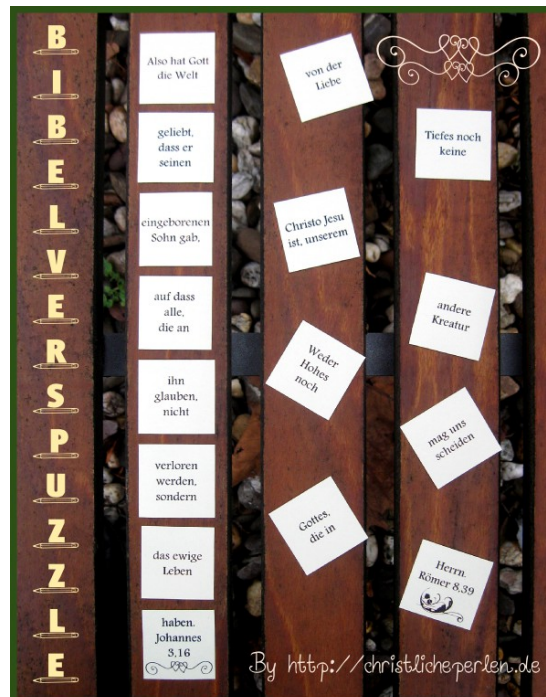 BIBELVERSPUZZLE
Also hat Gott
die Welt
geliebt,
dass er
seinen
eingeborenen
Sohn gab,
auf dass
alle,
die an
ihn
glauben,
nicht
verloren
werden,
sondern
das ewige
Leben
haben.
Johannes
3,16
von der
Liebe
Christo Jesu
ist, unserem
Weder
Hohes
noch
Gottes,
die in
Tiefes noch
keine
andere
Kreatur
mag uns
scheiden
Herrn.
Römer 8,39
By http://christlicheperlen.de